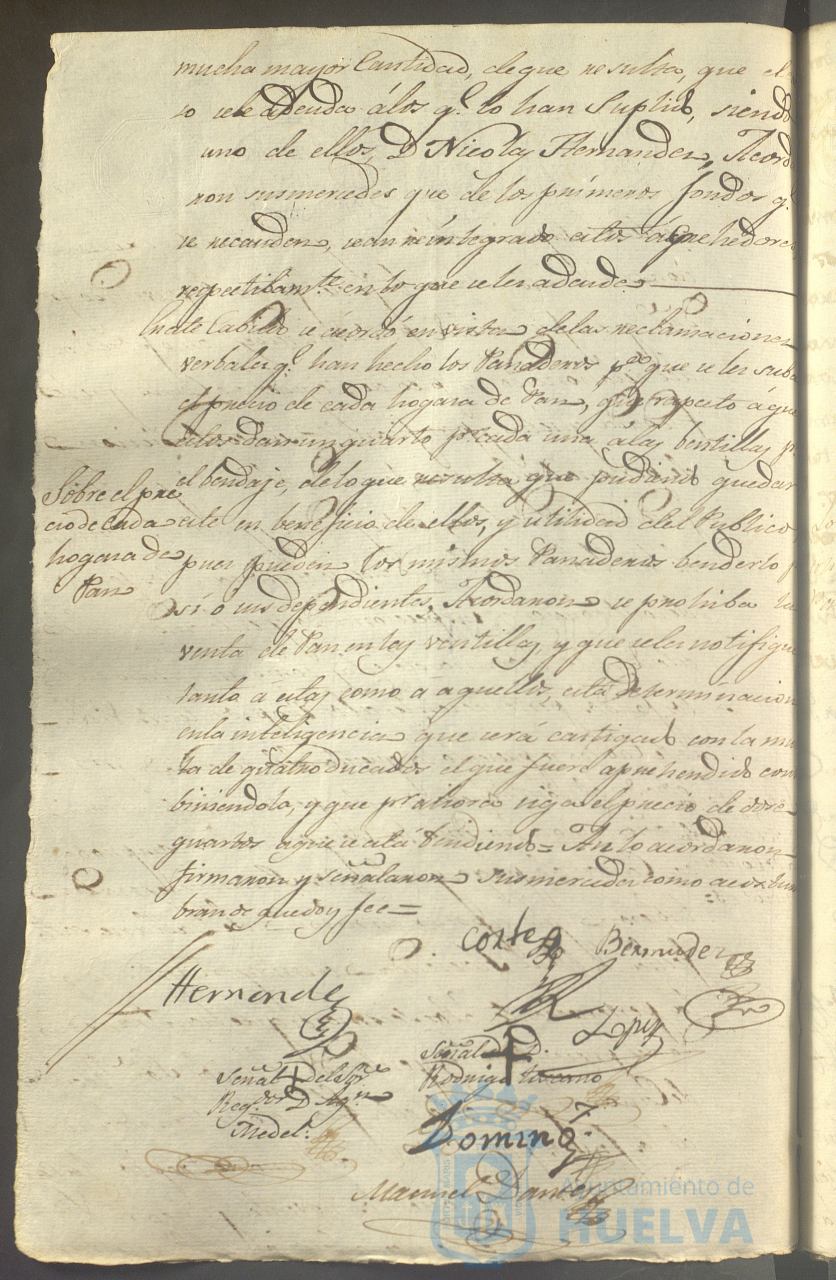 mucha mayor Cantidad, de que resulta, que el
to se le adeuda á los q.e lo han Suplido, siendo
uno de ellos, D Nicolas Hernandez, Acorda
ron sus mercedes que de los primeros fondos q.e
se recauden, sean reintegrado estos Acrehedores
respectibam.te en lo que se les adeuda
En este Cabildo se acordó en vista de las reclamaciones
verbales q.e han hecho los Panaderos p.a que se les suba
el precio de cada hogaza de Pan, que respecto á que
estos dan un quarto p.r cada una á las bentillas p.r
el bendaje, de lo que resulta que pudiendo quedar
este en beneficio de ellos, y utilidad del Publico
pues pueden los mismos Panaderos benderlo p.r
sí ó sus dependientes, Acordaron se prohiba la
venta de Pan en las ventillas, y que se les notifique
tanto á estas como a aquellos, esta determinacion
en la inteligencia que será castigado con la mul
ta de quatro ducados el que fuere aprehendido con
biniendola, y que p.r ahora siga el precio de dose
quartos a que se está bendiendo = Asi lo acordaron
firmaron y señalaron sus mercedes como acostum
bran de que doy fee =
Sobre el pre
cio de cada
hogaza de
Pan
Cortes
Bermudez
Hernende
Lopez
Señal del S.r
Reg.dor D. Ag.n
Medel.
Señal de D.
Rodrigo
Domingz
Manuel
Ayuntamiento de
HUELVA